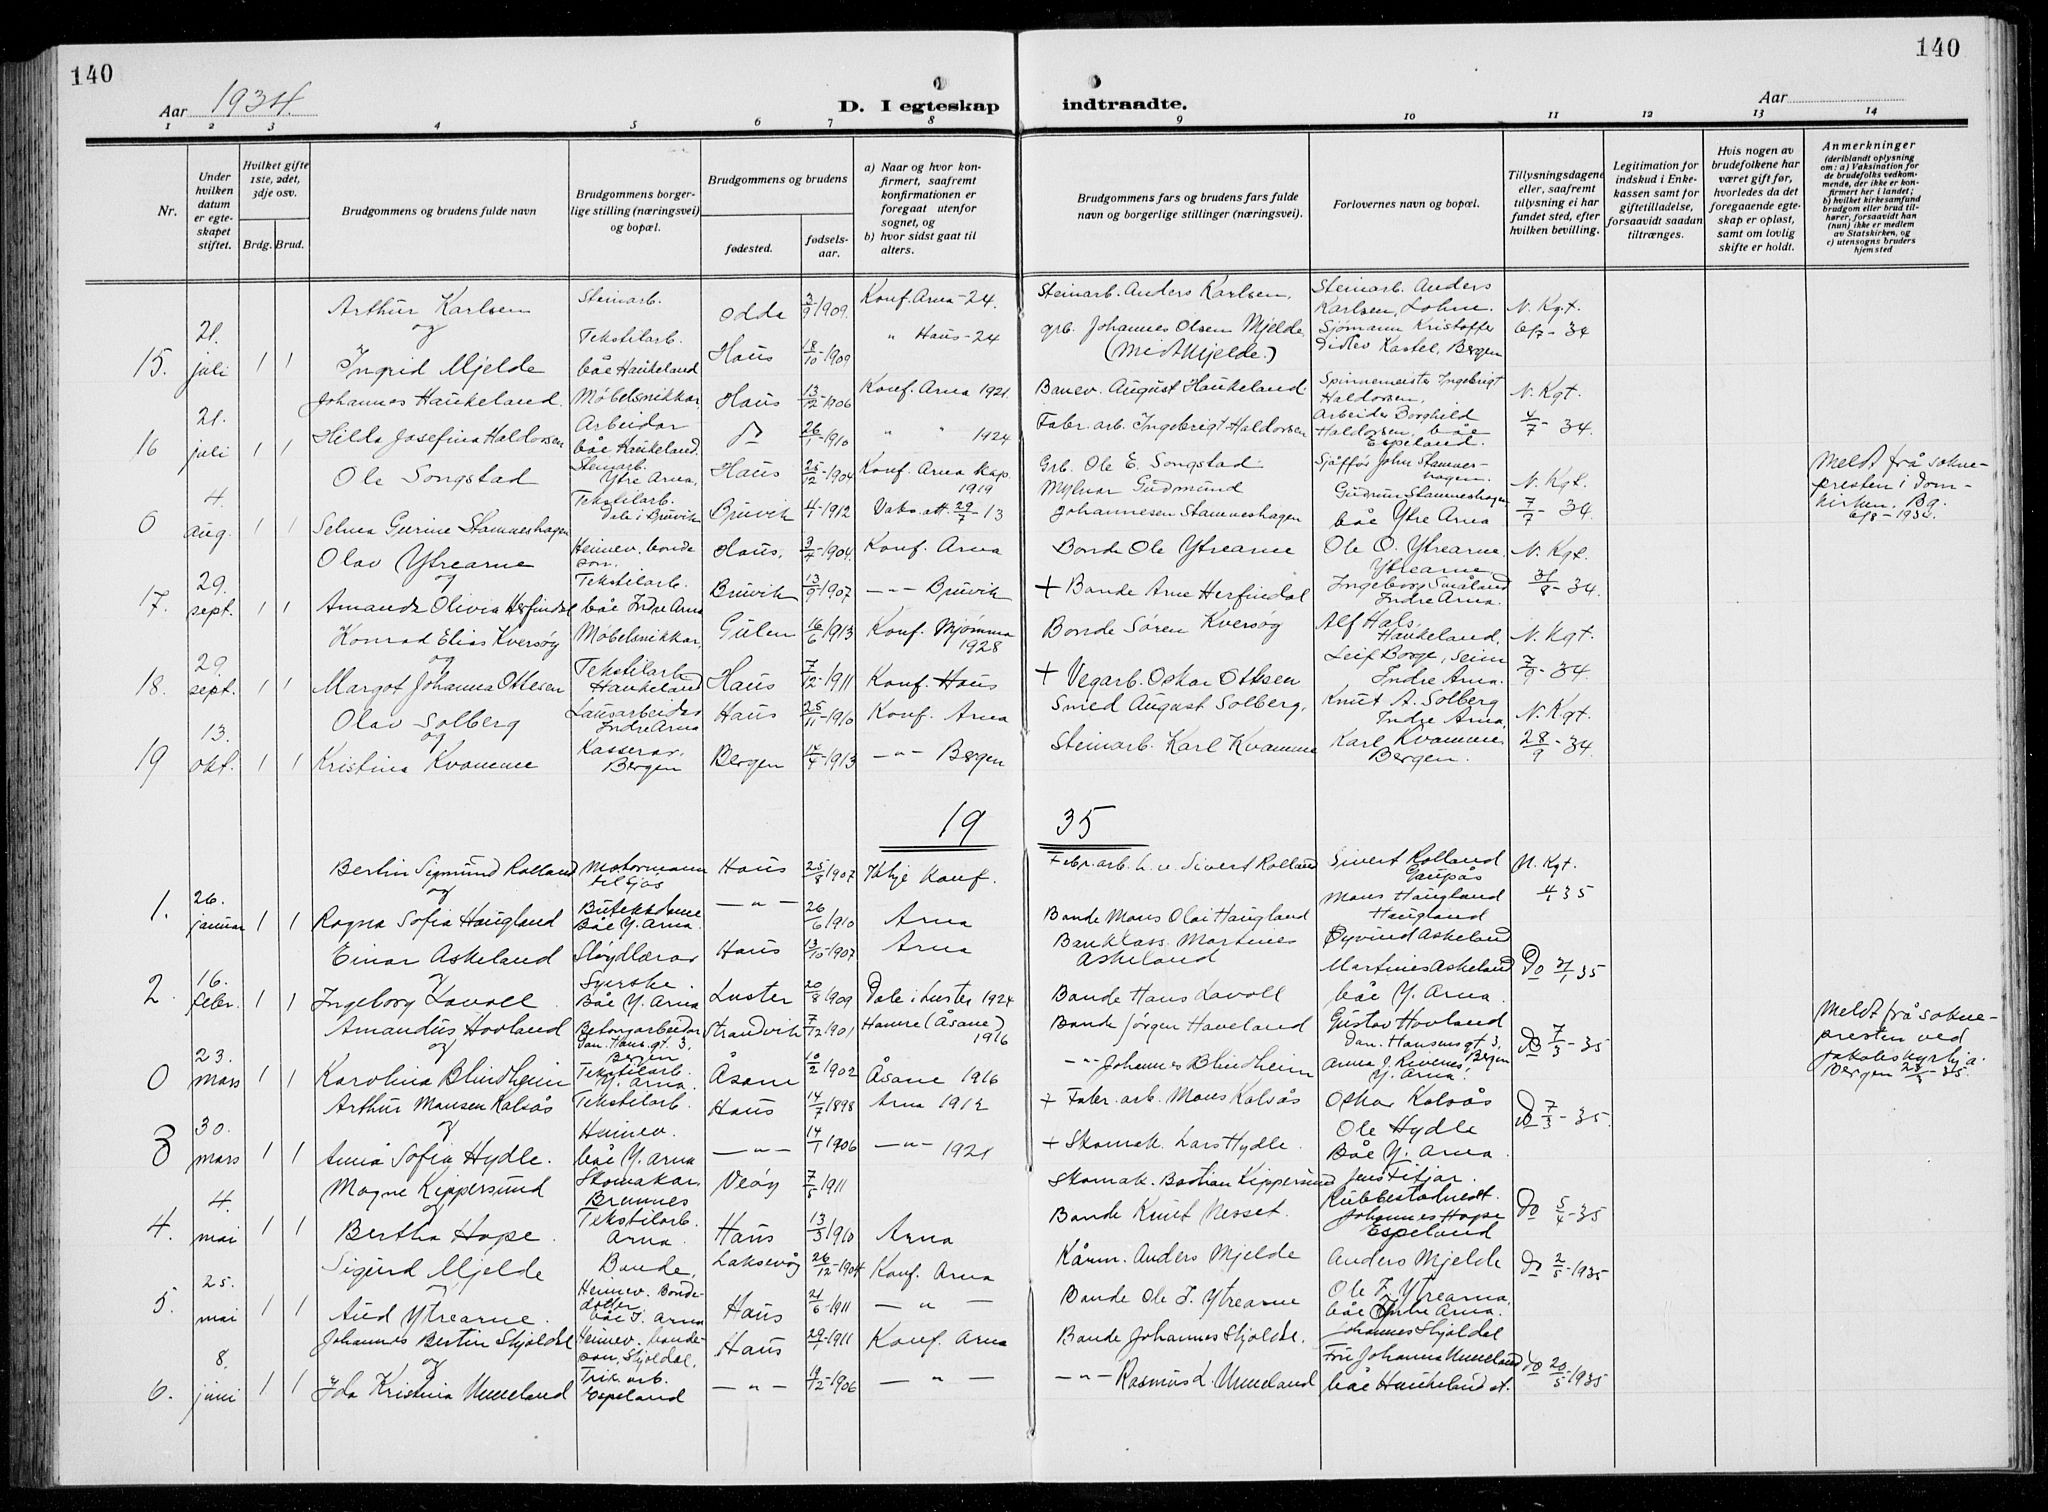 140
140
Aar 1934.
D. I egteskap indtraadte.
Aar
1 2 3 4 5 6 7 8 9 10 11 12 13 14
Nr.
Under hvilken datum er egteskapet stiftet.
Hvilket gifte 1ste, 2det, 3dje osv.
Brdg. Brud.
Brudgommens og brudens fulde navn
Brudgommens borgerlige stilling (næringsvei) og bopæl.
Brudgommens og brudens
fødested.
fødselsaar.
a) Naar og hvor konfirmert, saafremt konfirmationen er foregaat utenfor sognet, og
b) hvor sidst gaat til alters.
Brudgommens fars og brudens fars fulde navn og borgerlige stillinger (næringsvei).
Forlovernes navn og bopæl.
Tillysningsdagene eller, saafremt tillysning ei har fundet sted, efter hvilken bevilling.
Legitimation for indskud i Enkekassen samt for giftetilladelse, forsaavidt saadan tiltrænges.
Hvis nogen av brudefolkene har været gift før, hvorledes da det foregaaende egteskap er opløst, samt om lovlig skifte er holdt.
Anmerkninger
(deriblandt oplysning om: a) Vaksination for de brudefolks vedkommende, der ikke er konfirmert her i landet; b) hvilket kirkesamfund brudgom eller brud tilhører, forsaavidt han (hun) ikke er medlem av Statskirken, og c) utensogns bruders hjemsted
15. 21. juli 1 1 Arthur Karlsen Steinarb. Odda 3/9 1909. Konf. Arna - 24. Steinarb. Anders Karlsen. Steinarb. Anders Karlsen, Lohne N. Kgt. 6/7 - 34
og Ingrid Mjelde Tekstilarb. båe Haukeland Haus 18/10 - 1909 " Haus - 24 grb. Johannes Olsen Mjelde (Midtmjelde.) Sjømann Kristoffer Didlev Kastel, Bergen
16 21. juli 1 1 Johannes Haukeland. Møbelsnikkar Haus 13/12 - 1906 Konf. Arna 1921. Banev. August Haukeland. Spinnemeister Ingebrigt Haldorsen, N. Kgt. 4/7 - 34.
Hilda Josefina Haldorsen Arbeidar båe Haukeland. do 26/1 - 1910 " " 1924 Fabr. arb. Ingebrigt Haldorsen Arbeider Borghild Haldorsen, båe Espeland.
0 4. aug. 1 1 Ole Songstad Steinarb. Ytre Arna, Haus 25/12 - 1904 Konf. Arna kap. 1919 Grb. Ole E. Songstad Sjåffør John Stamneshagen. N. Kgt. 7/7 - 34. Meldt frå soknepresten i Domkirken, Bg. 6/8 - 1934.
Selma Gurine Stamneshagen Tekstilarb. Dale i Bruvik Bruvik 4/1 - 1912 Vaks. att. 29/7 - 13 Mylnar Gudmund Johannesen Stamneshagen Gudrun Stamneshagen båe Ytre Arna
17. 29. sept. 1 1 Olav Ytrearne Heimev. bondeson. Haus, 3/7 - 1904. Konf. Arna Bonde Ole Ytrearne Ole O. Ytrearne, Ytrearne N. Kgt. 31/8 - 34.
og Amanda Olivia Herfindal Tekstilarb. båe Indre Arna Bruvik 13/9 1907 — " — Bruvik + Bonde Arne Herfindal Ingeborg Småland Indre Arna.
18. 29. sept. 1 1 Konrad Elias Kversøy Møbelsnikkar Gulen 16/6 1913 Konf. Mjømna 1928 Bonde Søren Kversøy Alf Hals, Haukeland. N. Kgt. 7/9 - 34.
og Margot Johanna Ottesen Tekstilarb. Haukeland Haus 7/12 - 1911 Konf. Haus + Vegarb. Oskar Ottesen Leif Borge, Seim Indre Arna.
19 13. okt. 1 1 Olav Solberg Lausarbeidar Indre Arna Haus 25/11 - 1910 Konf. Arna Smed August Solberg. Knut A. Solberg Indre Arna N. Kgt. 28/9 - 34.
og Kristina Kvamme Kasserar, Bergen Bergen 14/4 - 1913 — " — Bergen Steinarb. Karl Kvamme Karl Kvamme Bergen.
19 35
1. 26. januar 1 1 Bertin Sigmund Rolland Motormann til sjøs Haus 25/8 1907 Ikkje konf. Febr. arb. Sivert Rolland Sivert Rolland Gaupås N. Kgt. 4/1 35
og Ragna Sofia Haugland Butekkdame Båe Y. Arna. — " — 26/6 1910 Arna Bonde Mons Olai Haugland Mons Haugland Haugland
2. 16. febr. 1 1 Einar Askeland Sløydlærar Haus 13/10 - 1907 Arna Bankkass. Martines Askeland Øyvind Askeland Do 31/1 35
og Ingeborg Lavoll Syerske. Båe Y. Arna Luster 20/8 1909 Dale i Luster 1924 Bonde Hans Lavoll Martines Askeland båe Y. Arna.
0 23. mars 1 1 Amandus Hovland Betongarbeidar Dan. Hans. gt. 3, Bergen Strandvik 7/12 1901 Hamre (Åsane) 1916 Bonde Jørgen Haveland Gustav Hovland Dan. Hansens gt. 3, Bergen do 7/3 - 35 Meldt frå soknepresten ved Jakobskyrkja Bergen 23/3 - 35.
og Karolina Blindheim Tekstilarb. Y. Arna. Åsane 10/2 1902 Åsane 1916 — " — Johannes Blindheim Anna J. Rivenes Y. Arna.
3 30. mars 1 1 Arthur Monsen Kalsås Tekstilarb. Haus 14/7 1898 Arna 1912 + Fabr. arb. Mons Kalsås Oskar Kalsås do 7/3 - 35.
og Anna Sofia Hydle. Heimev. båe Y. Arna — " — 14/1 1906 — " — 1921 + Skomak. Lars Hydle. Ole Hydle Båe Y. Arna.
4. 4. mai 1 1 Magne Kippersund Skomakar, Bremnes Veøy 7/5 - 1911 Skomak. Bastian Kippersund Jens Fitjar. Rubbestadneset. do 5/4 - 35
og Bertha Hope. Tekstilarb. Arna. Haus 13/3 1910 Arna Bonde Knut Nesset. Johannes Hope Espeland
5. 25. mai 1 1 Sigurd Mjelde Bonde, Laksevåg 26/12 - 1904 Konf. Arna Kårm. Anders Mjelde Anders Mjelde do 2/5 - 1935
og Aud Ytrearne. Heimev. Bondedotter båe I. Arna Haus 21/6 - 1911 — " — Bonde Ole J. Ytrearne Ole J. Ytrearna, båe Indre Arna.
6. 8. juni 1 1 Johannes Bertin Skjoldal Heimev. bondeson, Skjoldal, Haus 29/1 - 1911 Konf. Arna Bonde Johannes Skjoldal. Johannes Skjoldal do 20/5 - 1935
og Ida Kristina Unneland Trik. arb. Espeland — " — 19/12 - 1906 — " — — " — Rasmus L. Unneland Fru Johanna Unneland båe Haukeland st.